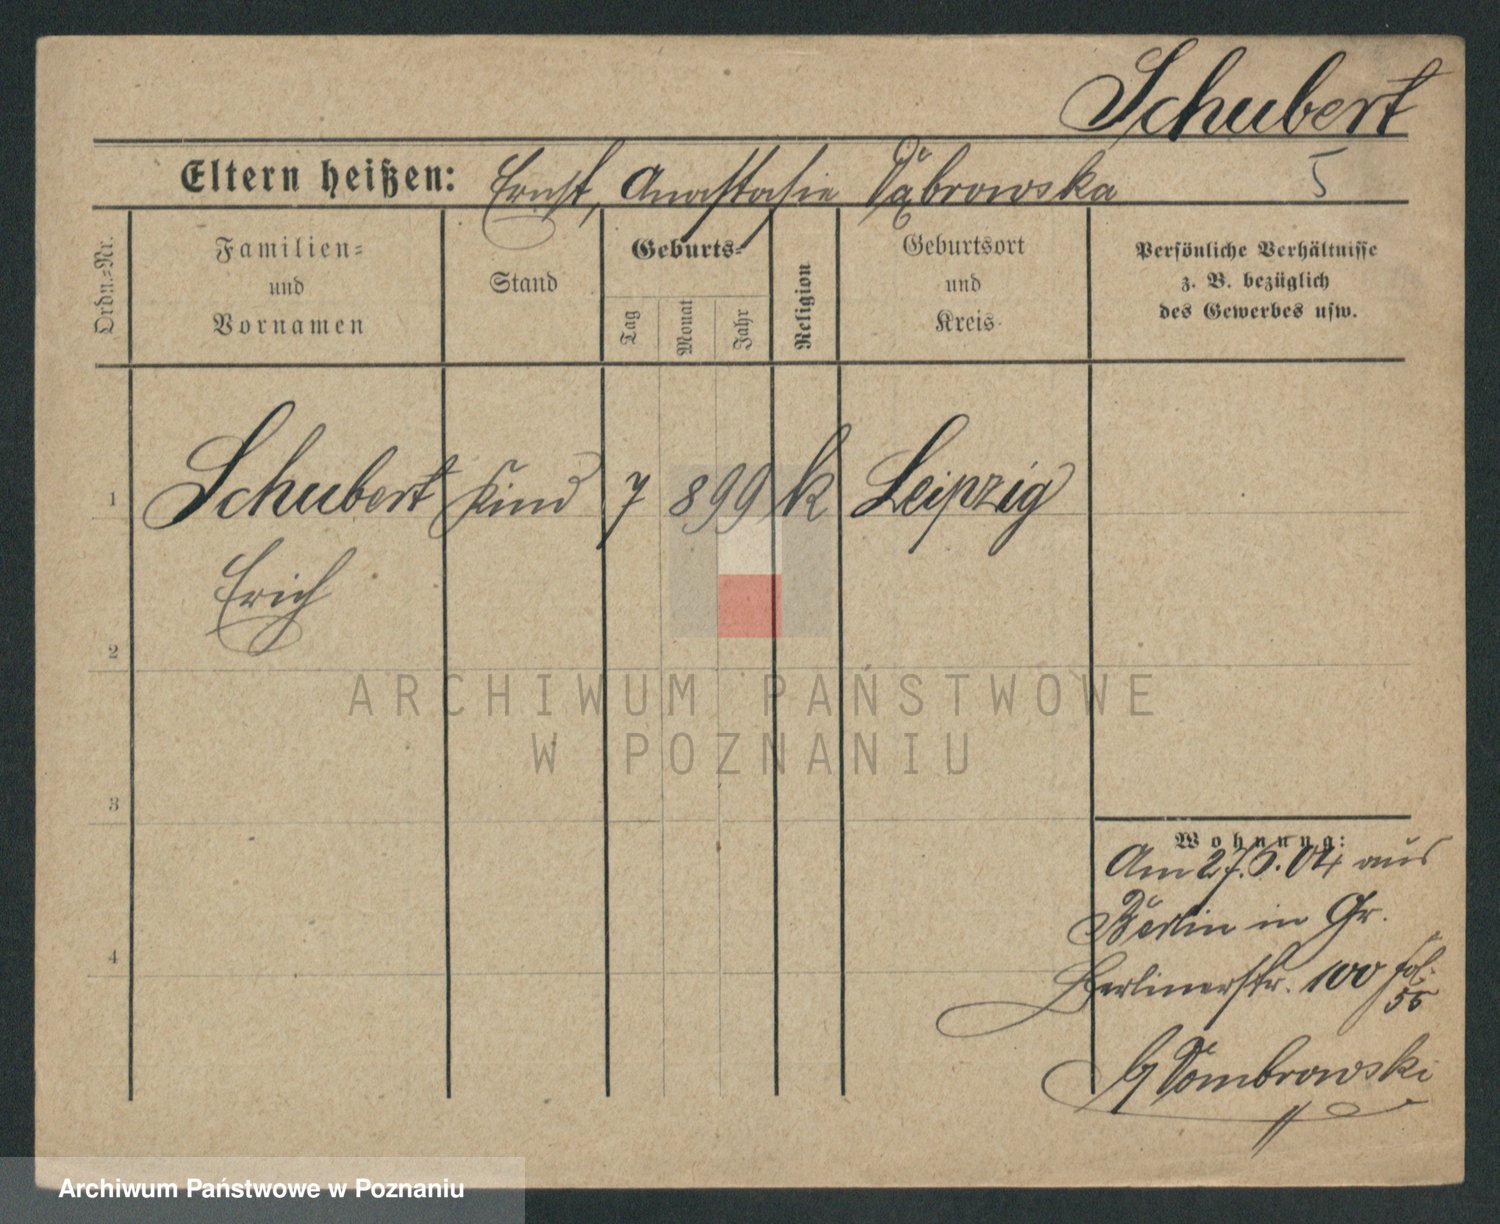 Schubert
Eltern heißen: Ernst, Anastasie Dąbrowska
5
Ordn.=Nr.
Familien=
und
Vornamen
Stand
Geburts=
Tag
Monat
Jahr
Religion
Geburtsort
und
Kreis
Persönliche Verhältnisse
z. B. bezüglich
des Gewerbes usw.
1 Schubert Kind 7 8 99 k Leipzig
Erich
2
ARCHIWUM PAŃSTWOWE
W POZNANIU
3
Wohnung:
Am 27.6.04 aus
Berlin in Gr.
4
Berlinerstr. 100 fol:
55
b/ Dombrowski
Archiwum Państwowe w Poznaniu